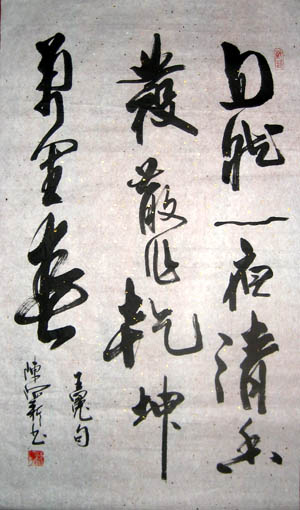 自然一夜清香
發散作乾坤
萬里春
王冕句
陳新书